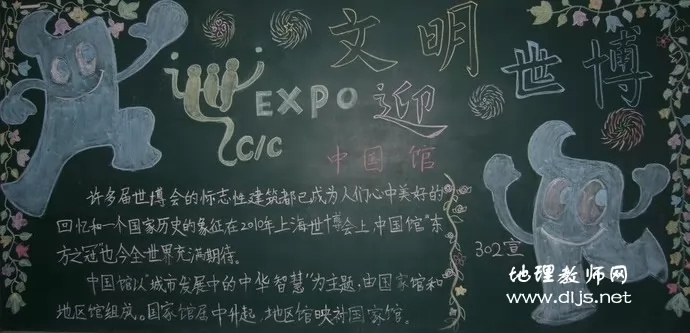 文明
迎
世博
EXPO
C/C
中国馆
许多届世博会的标志性建筑都已成为人们心中美好的
回忆和一个国家历史的象征在2010年上海世博会上,中国馆"东
方之冠"也令全世界充满期待。
中国馆以"城市发展中的中华智慧"为主题,由国家馆和
地区馆组成。国家馆居中升起,地区馆映衬国家馆。
302宣
地理教师网
www.dljs.net